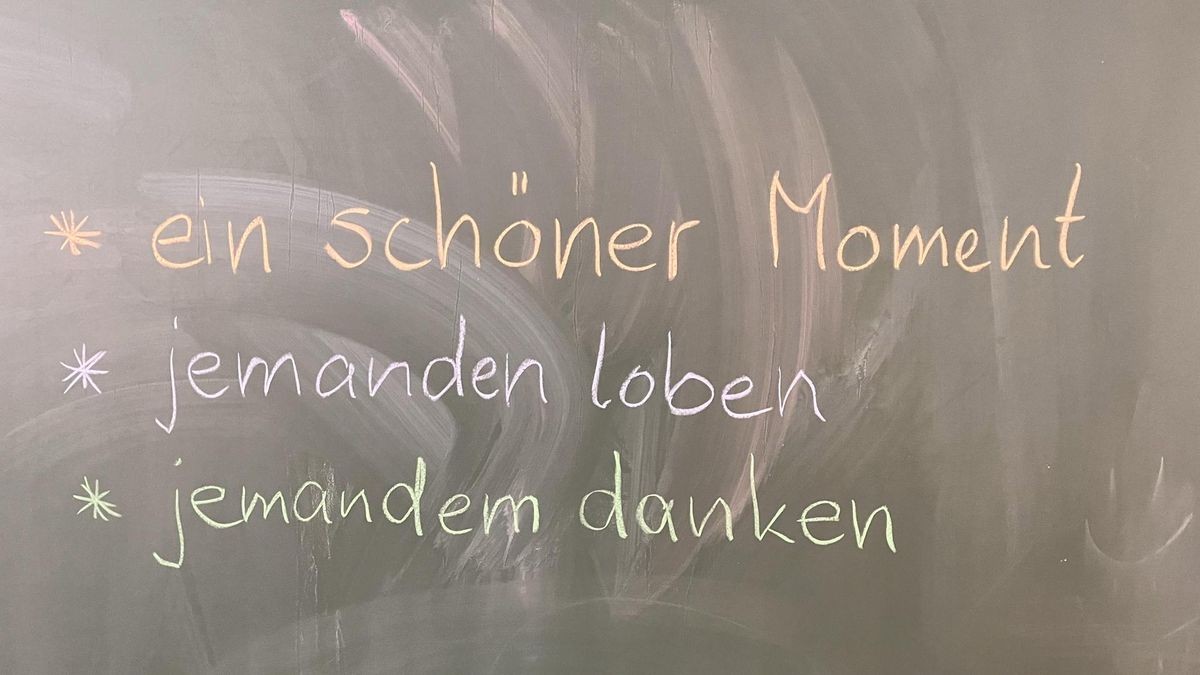 * ein schöner Moment
* jemanden loben
* jemandem danken